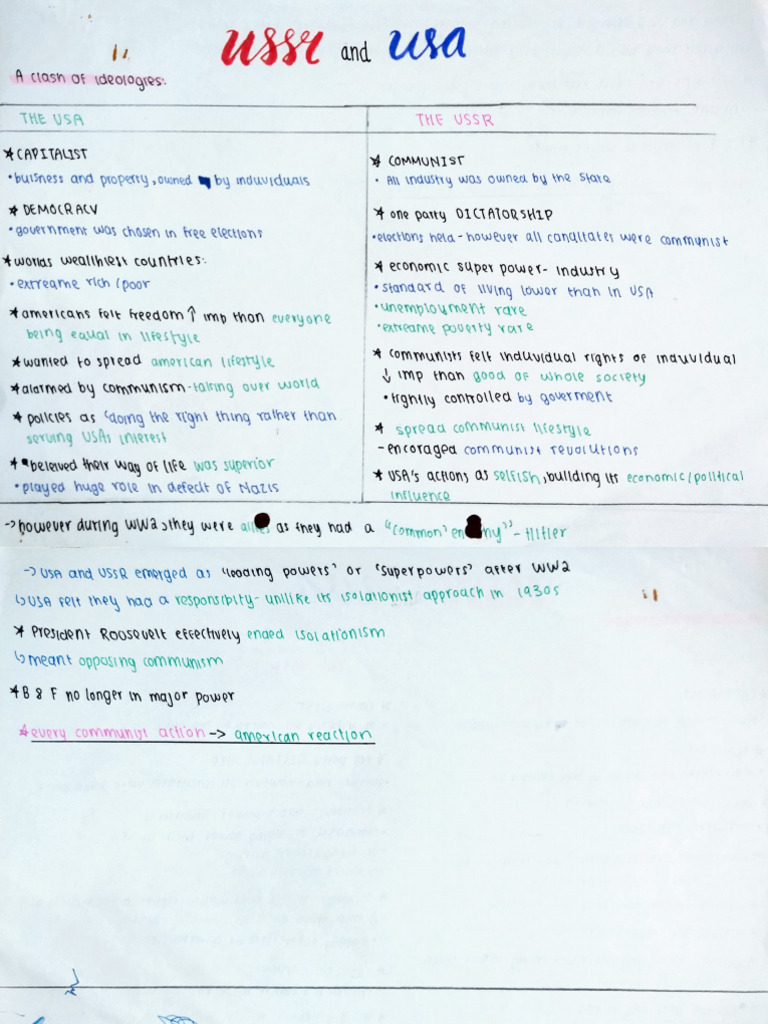 ussr and usa
A clash of ideologies:
THE USA
★ CAPITALIST
• buisness and property, owned by induviduals
★ DEMOCRACY
• government was chosen in free elections
★ worlds wealthiest countries:
• extreame rich/poor
★ americans felt freedom ↑ imp than everyone
being equal in lifestyle
★ wanted to spread american lifestyle
★ alarmed by communism - taking over world
★ policies as 'doing the right thing rather than
serving USAs interest
★ beleived their way of life was superior
• played huge role in defect of Nazis
THE USSR
★ COMMUNIST
• All industry was owned by the state
★ one party DICTATORSHIP
• elections held - however all canditates were communist
★ economic super power - industry
• standard of living lower than in USA
• unemployment rare
• extreame poverty rare
★ communists felt individual rights of induvidual
↓ imp than good of whole society
• tightly controlled by goverment
★ spread communist lifestyle
- encoraged communist revolutions
★ USA's actions as selfish, building its economic/political
influence
→ however during WW2, they were as they had a "common' " - Hitler
→ USA and USSR emerged as 'leading powers' or 'superpowers' after WW2
↳ USA felt they had a responsibity - unlike its isolationist approach in 1930s
★ President Roosevelt effectively ended isolationism
↳ meant opposing communism
★ B & F no longer in major power
★ every communist action -> american reaction